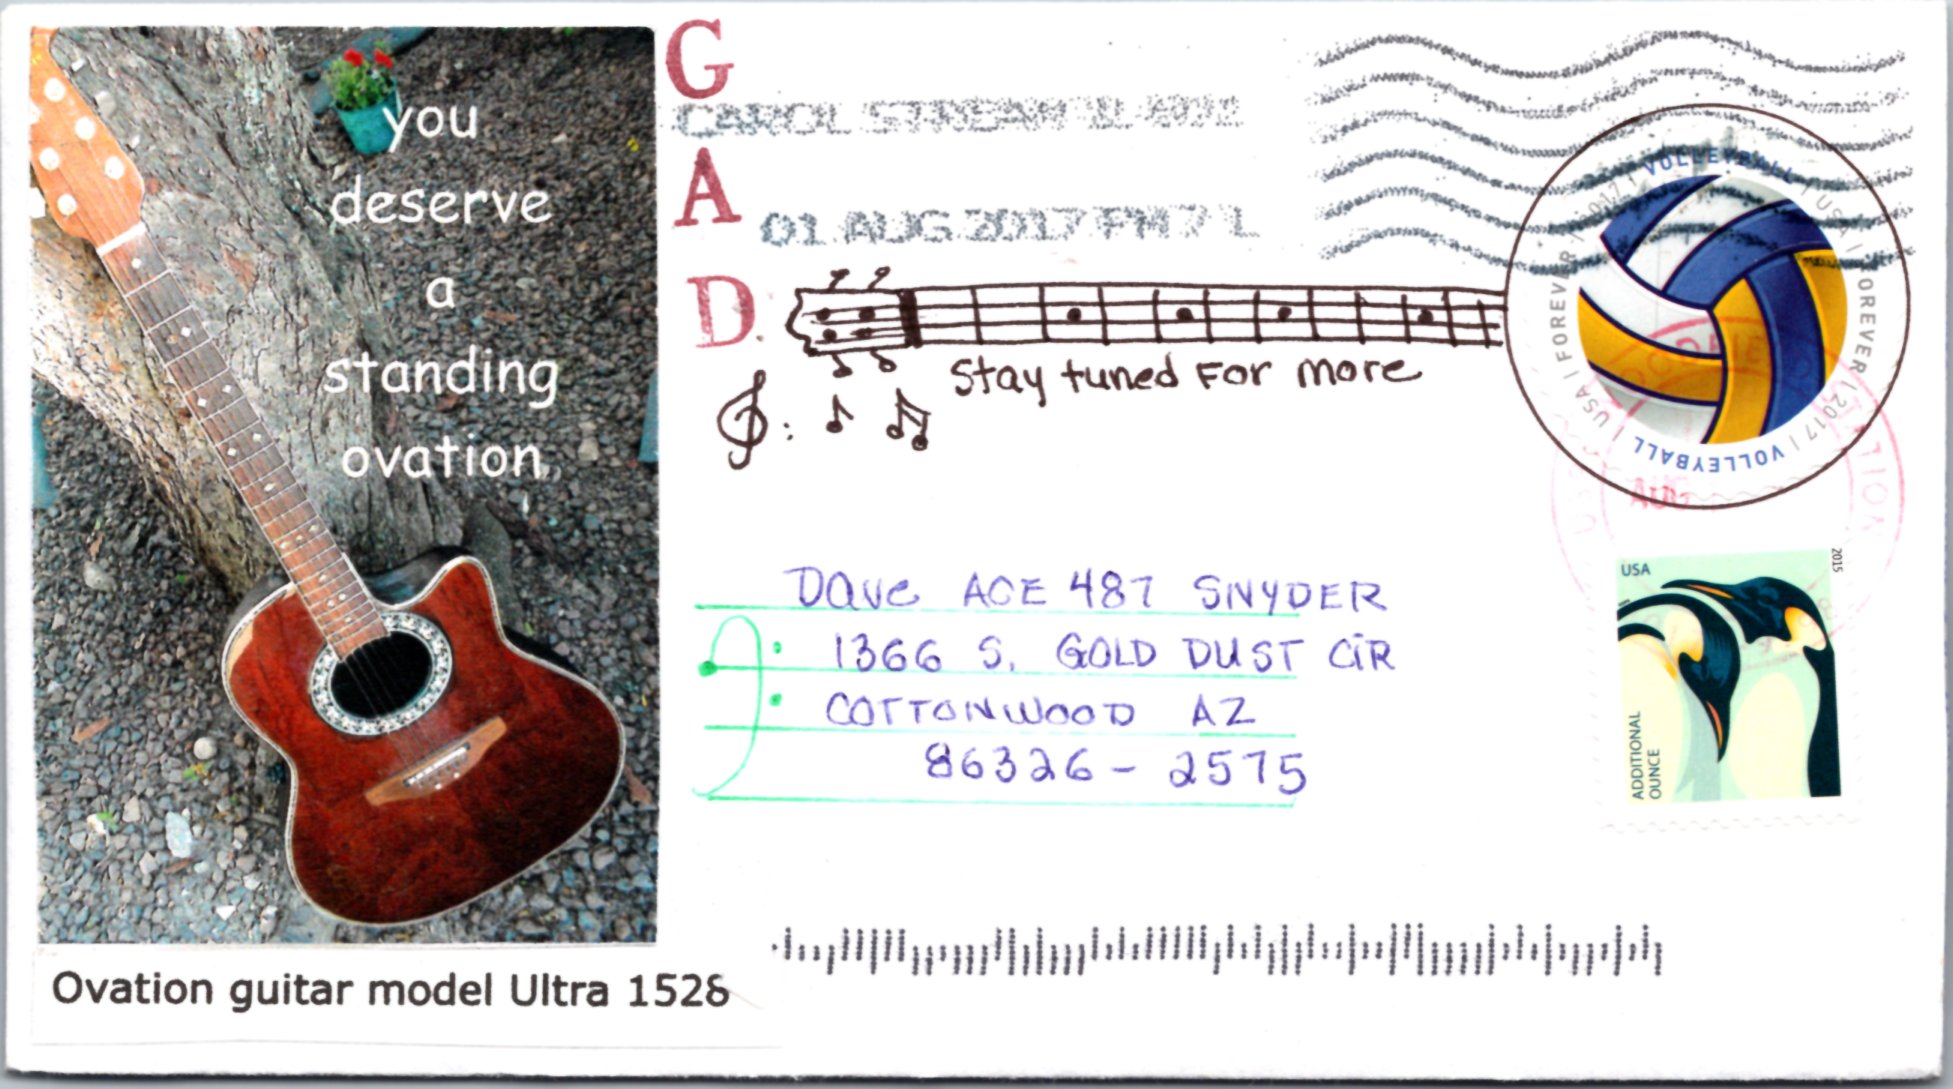 you
deserve
a
standing
ovation
Ovation guitar model Ultra 1528
G
A
D
CAROL STREAM IL
01 AUG 2017 PM 7 L
Stay tuned For more
VOLLEYBALL / USA / FOREVER / 2017 / VOLLEYBALL / USA / FOREVER / 2017 /
AUG
USA
2015
ADDITIONAL
OUNCE
Dave ACE 487 SNYDER
1366 S. GOLD DUST CiR
COTTONWOOD AZ
86326 - 2575